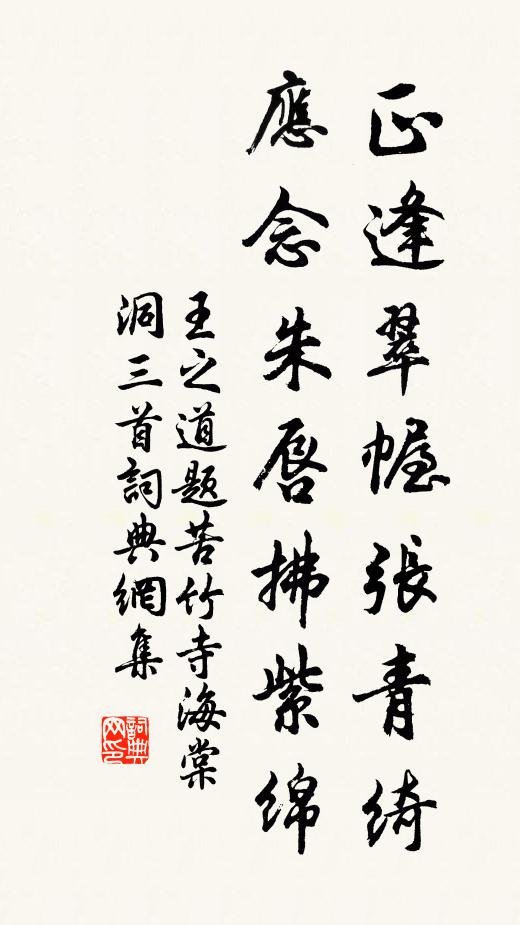 正逢翠幄張青綺
應念朱唇拂紫綿
王之道題苦竹寺海棠
洞三首詞典網集
詞典网印